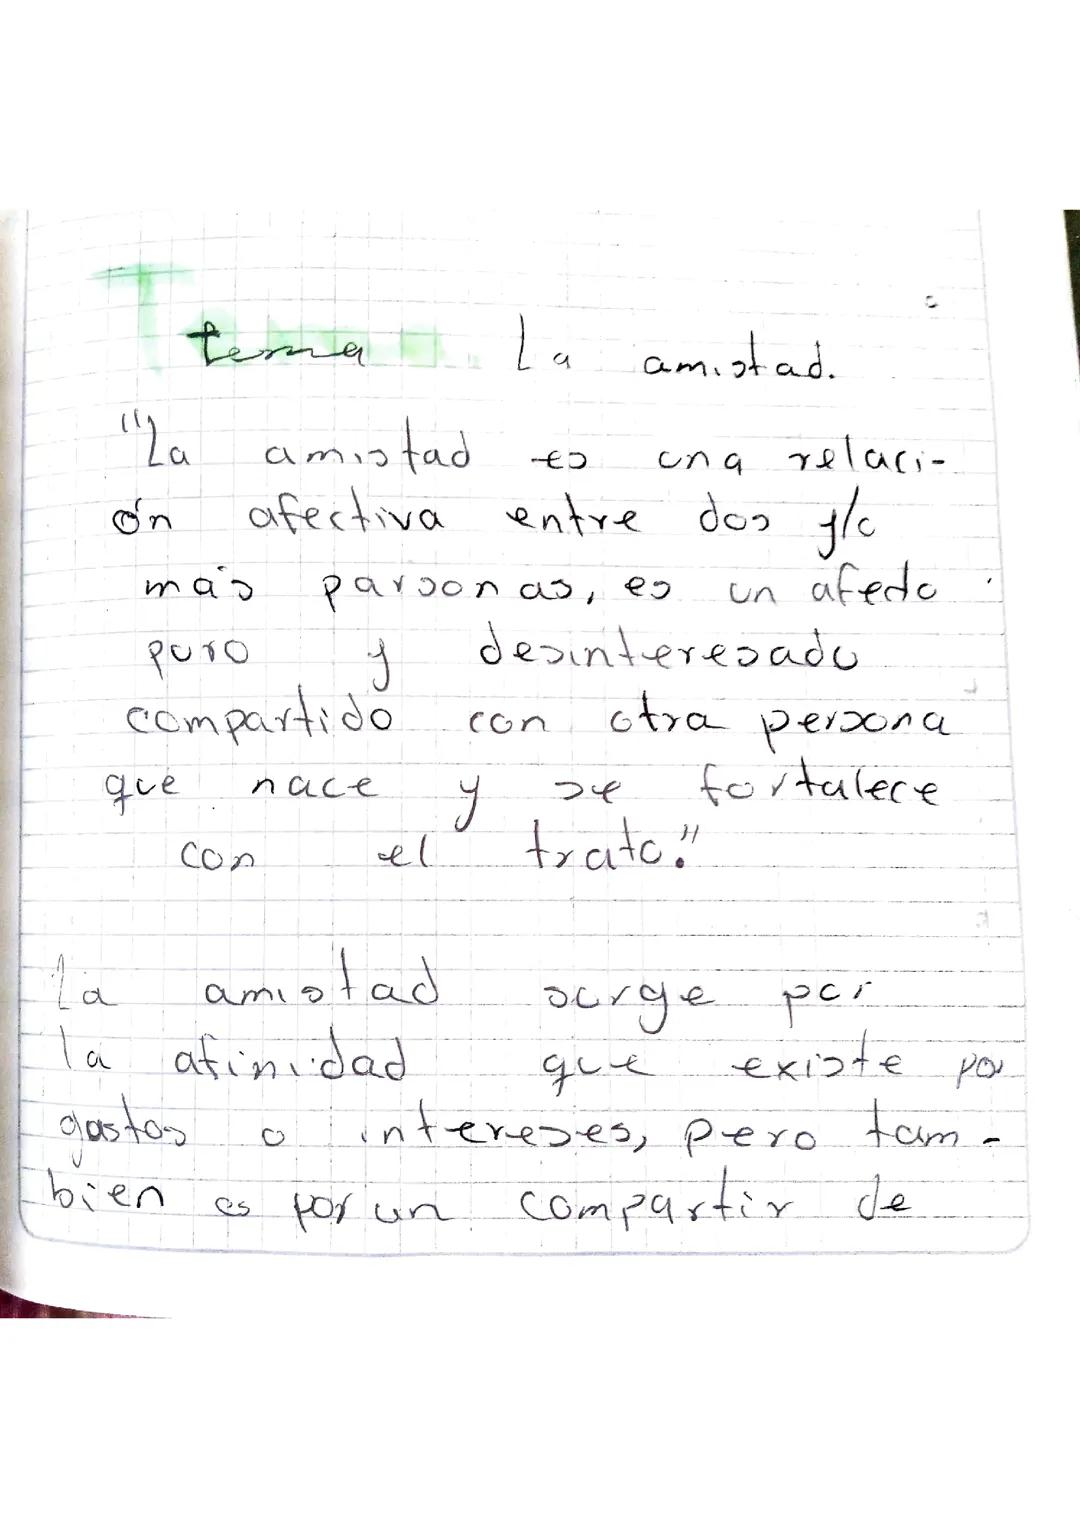 tema La amistad.
"La amistad es una relaci-
ón afectiva entre dos y/o
más parsonas, es un afecto
puro y desinteresado
compartido con otra persona
que nace y se fortalece
con el trato."
La amistad surge por
la afinidad que existe por
gastos o intereses, pero tam-
bien es por un compartir de